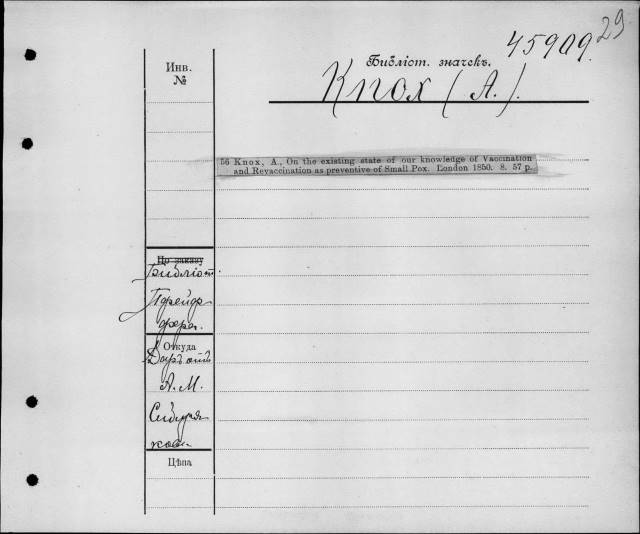 29
45909.
Инв.
№
Библіот. значекъ.
Knox (A.).
56 Knox, A., On the existing state of our knowledge of Vaccination
and Revaccination as preventive of Small Pox. London 1850. 8. 57 p.
№ заказу
Библіот.
Пфейф-
фера.
Откуда
Даръ отъ
А.М.
Сибиря-
кова
Цѣна